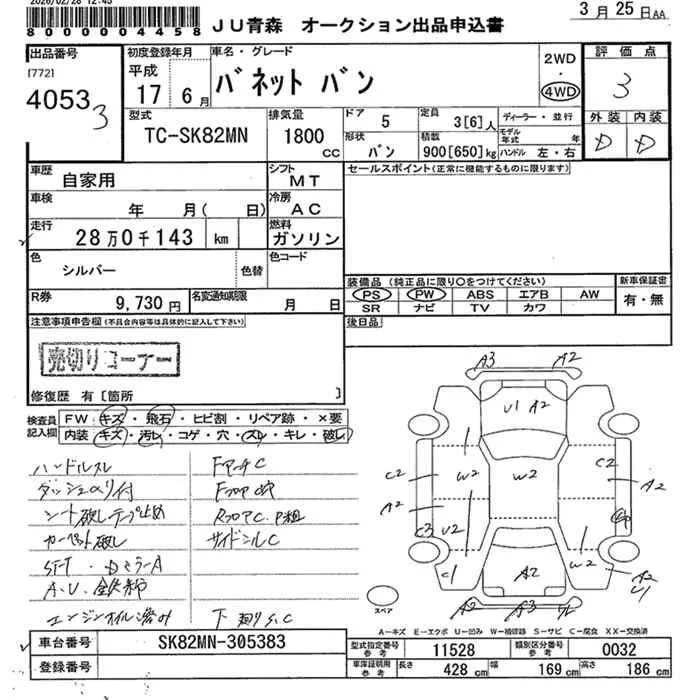 2026/02/28 12:45
8 0 0 0 0 0 4 4 5 8
JU青森 オークション出品申込書
3月25日AA
出品番号
[772]
4053
3
初度登録年月
平成
17 6月
車名・グレード
バネット バン
2WD
・
4WD
評価点
3
型式
TC-SK82MN
排気量
1800
CC
ドア
5
定員
3[6]人
ディーラー・並行
モデル年式 年
形状
バン
積載
900[650]kg
ハンドル 左・右
外装 内装
D D
車歴
自家用
シフト
MT
セールスポイント(正常に機能するものに限ります)
車検
年 月( 日)
冷房
AC
走行
28万0千143 km
燃料
ガソリン
色
シルバー
色替
色コード
装備品 (純正品に限り○をつけてください)
新車保証書
PS PW ABS エアB AW
有・無
SR ナビ TV カワ
R券
9,730円
名変通知期限
月 日
後日品
注意事項申告欄(不具合内容等は具体的に記入して下さい)
売切りコーナー
修復歴 有[箇所 ]
検査員記入欄
FW キズ・飛石・ヒビ割・リペア跡・×要
内装 キズ・汚レ・コゲ・穴・スレ・キレ・破レ
ハンドルスレ
ダッシュのり付
シート破レテープ止め
カーペット破レ
エンジンオイル滲み
FフロアC
サイドシルC
A3 A2
U1 A2
C2 W2 W2 C2 A2
A2
C3 U2
C1 A2 W2 A2 U1
A2 A3
スペア
A-キズ E-エクボ U-凹み W-補修跡 S-サビ C-腐食 XX-交換済
車台番号
SK82MN-305383
登録番号
型式指定番号 参考
11528
類別区分番号 参考
0032
車庫証明用 参考
長さ 428 cm
幅 169 cm
高さ 186 cm